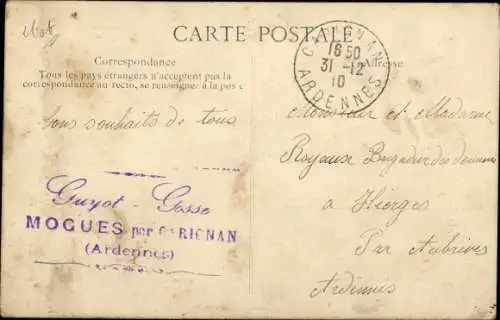 CARTE POSTALE
Correspondance
Tous les pays étrangers n'acceptent pas la
correspondance au recto, se renseigner à la pos e
Adresse
CARIGNAN
16 50
31 -12
10
ARDENNES
Bons souhaits de tous
Guyot - Gosse
MOGUES par CARIGNAN
(Ardennes)
Monsieur et Madame
Royaux Brigadier des douanes
à Hierges
Par Aubrives
Ardennes